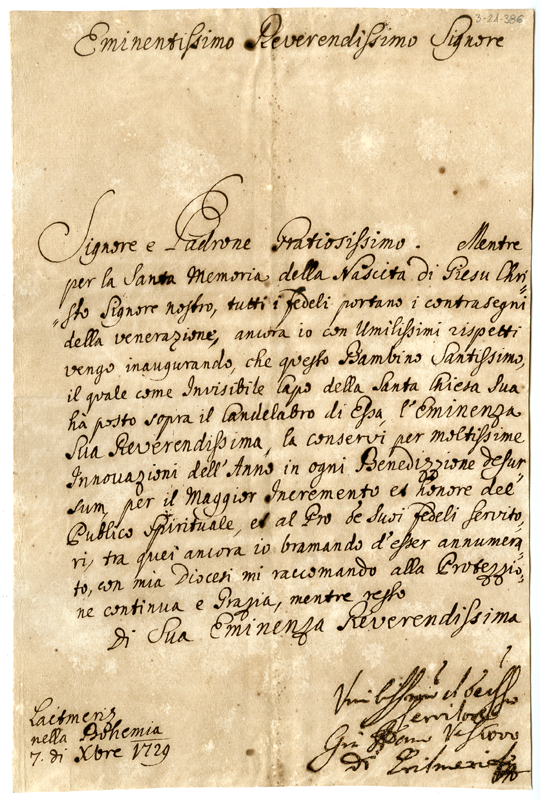 3-21-386
Eminentissimo Reverendissimo Signore
Signore e Padrone Gratiosissimo. Mentre
per la Santa Memoria della Nascita di Giesu Chri=
=sto Signore nostro, tutti i fedeli portano i contrasegni
della venerazione, ancora io con Umilissimi rispetti
vengo inaugurando, che questo Bambino Santissimo,
il quale come Invisibile Capo della Santa Chiesa Sua
ha posto sopra il Candelabro di Essa, l'Eminenza
Sua Reverendissima, la conservi per moltissime
Innovazioni dell'Anno in ogni Benedizzione desur=
sum, per il Maggior Incremento et honore del
Publico Spirituale, et al Pro de Suoi fedeli Servito,
ri, tra quei ancora io bramando d'esser annumera,
to, con mia Diocesi mi raccomando alla Protezzio,
ne continua e Grazia, mentre resto
di Sua Eminenza Reverendissima
Laitmeriz
nella Bohemia
7. di Xbre 1729
Servitore
Vescovo
di